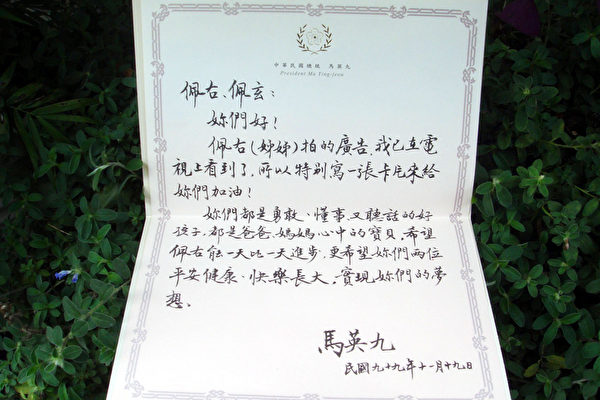 中華民國總統 馬英九
President Ma Ying-jeou
佩右、佩玄：
妳們好！
佩右(姊姊)拍的廣告，我已在電
視上看到了，所以特別寫一張卡片來給
妳們加油！
妳們都是勇敢、懂事、又聽話的好
孩子，都是爸爸、媽媽心中的寶貝，希望
佩右能一天比一天進步，更希望妳們兩位
平安健康、快樂長大，實現妳們的夢
想。
馬英九
民國九十九年十一月十九日